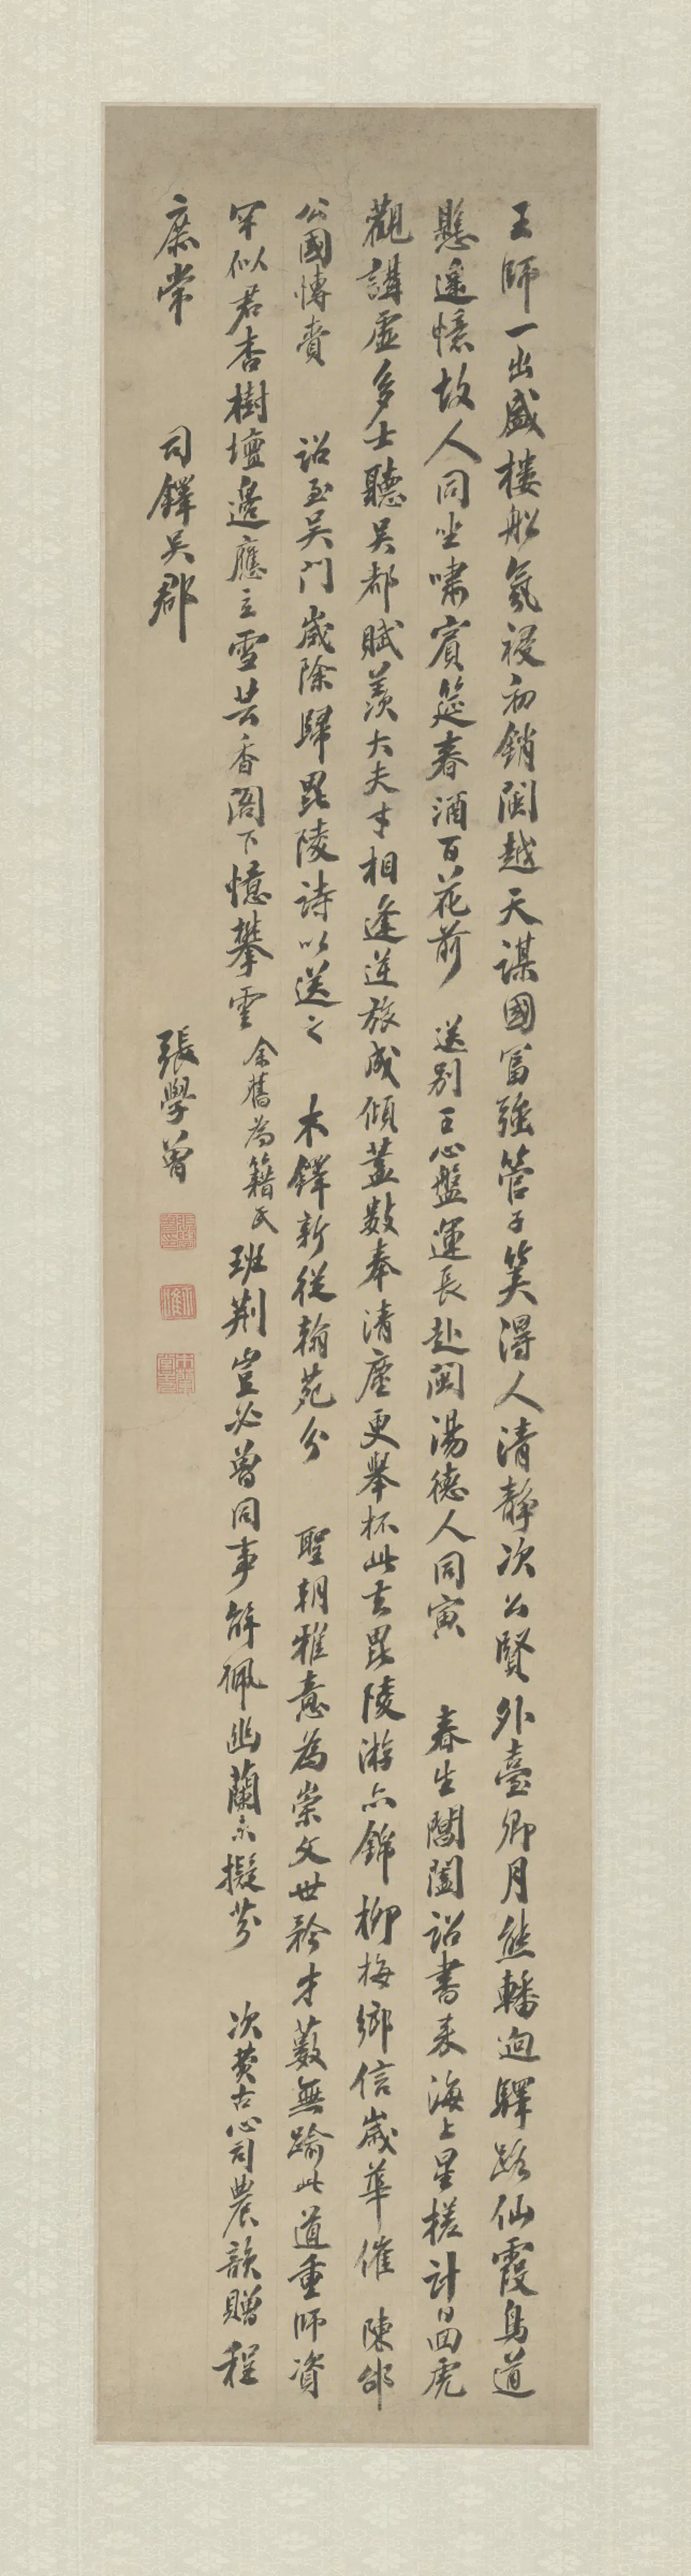 王師一出盛樓船氛祲初銷閩越天謀國富強管子筴得人清靜次公賢外臺卿月熊轓迥驛路仙霞鳥道
懸遙憶故人同坐嘯賓筵春酒百花前 送別王心盤運長赴閩湯德人同寅 春生閶闔詔書來海上星槎計曰回虎
觀講虛多士聽吳都賦羨大夫才相逢逆旅成傾蓋數奉清塵更舉杯此去毘陵游亦錦柳梅鄉信歲華催 陳邰
公國博賚 詔至吳門歲除歸毘陵詩以送之 木鐸新從翰苑分 聖朝雅意為崇文世矜才藪無踰此道重師資
罕似君杏樹壇邊應立雪芸香閣下憶攀雲余舊為籍氏班荊豈必曾同事解佩幽蘭未擬芬 次黃古心司農韻贈程
庶常 司鐸吳郡 張學曾